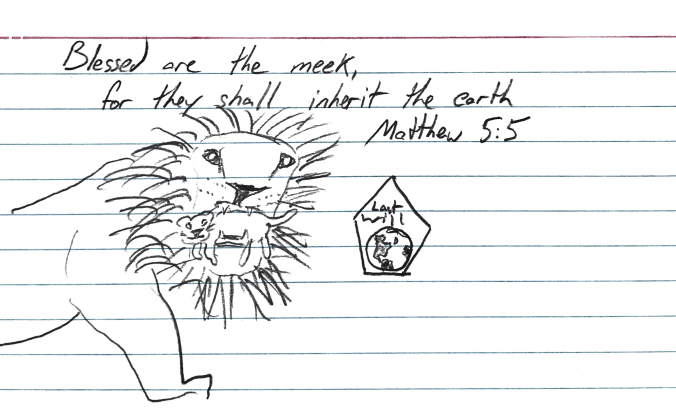 Blessed are the meek,
for they shall inherit the earth
Matthew 5:5
Last
Will